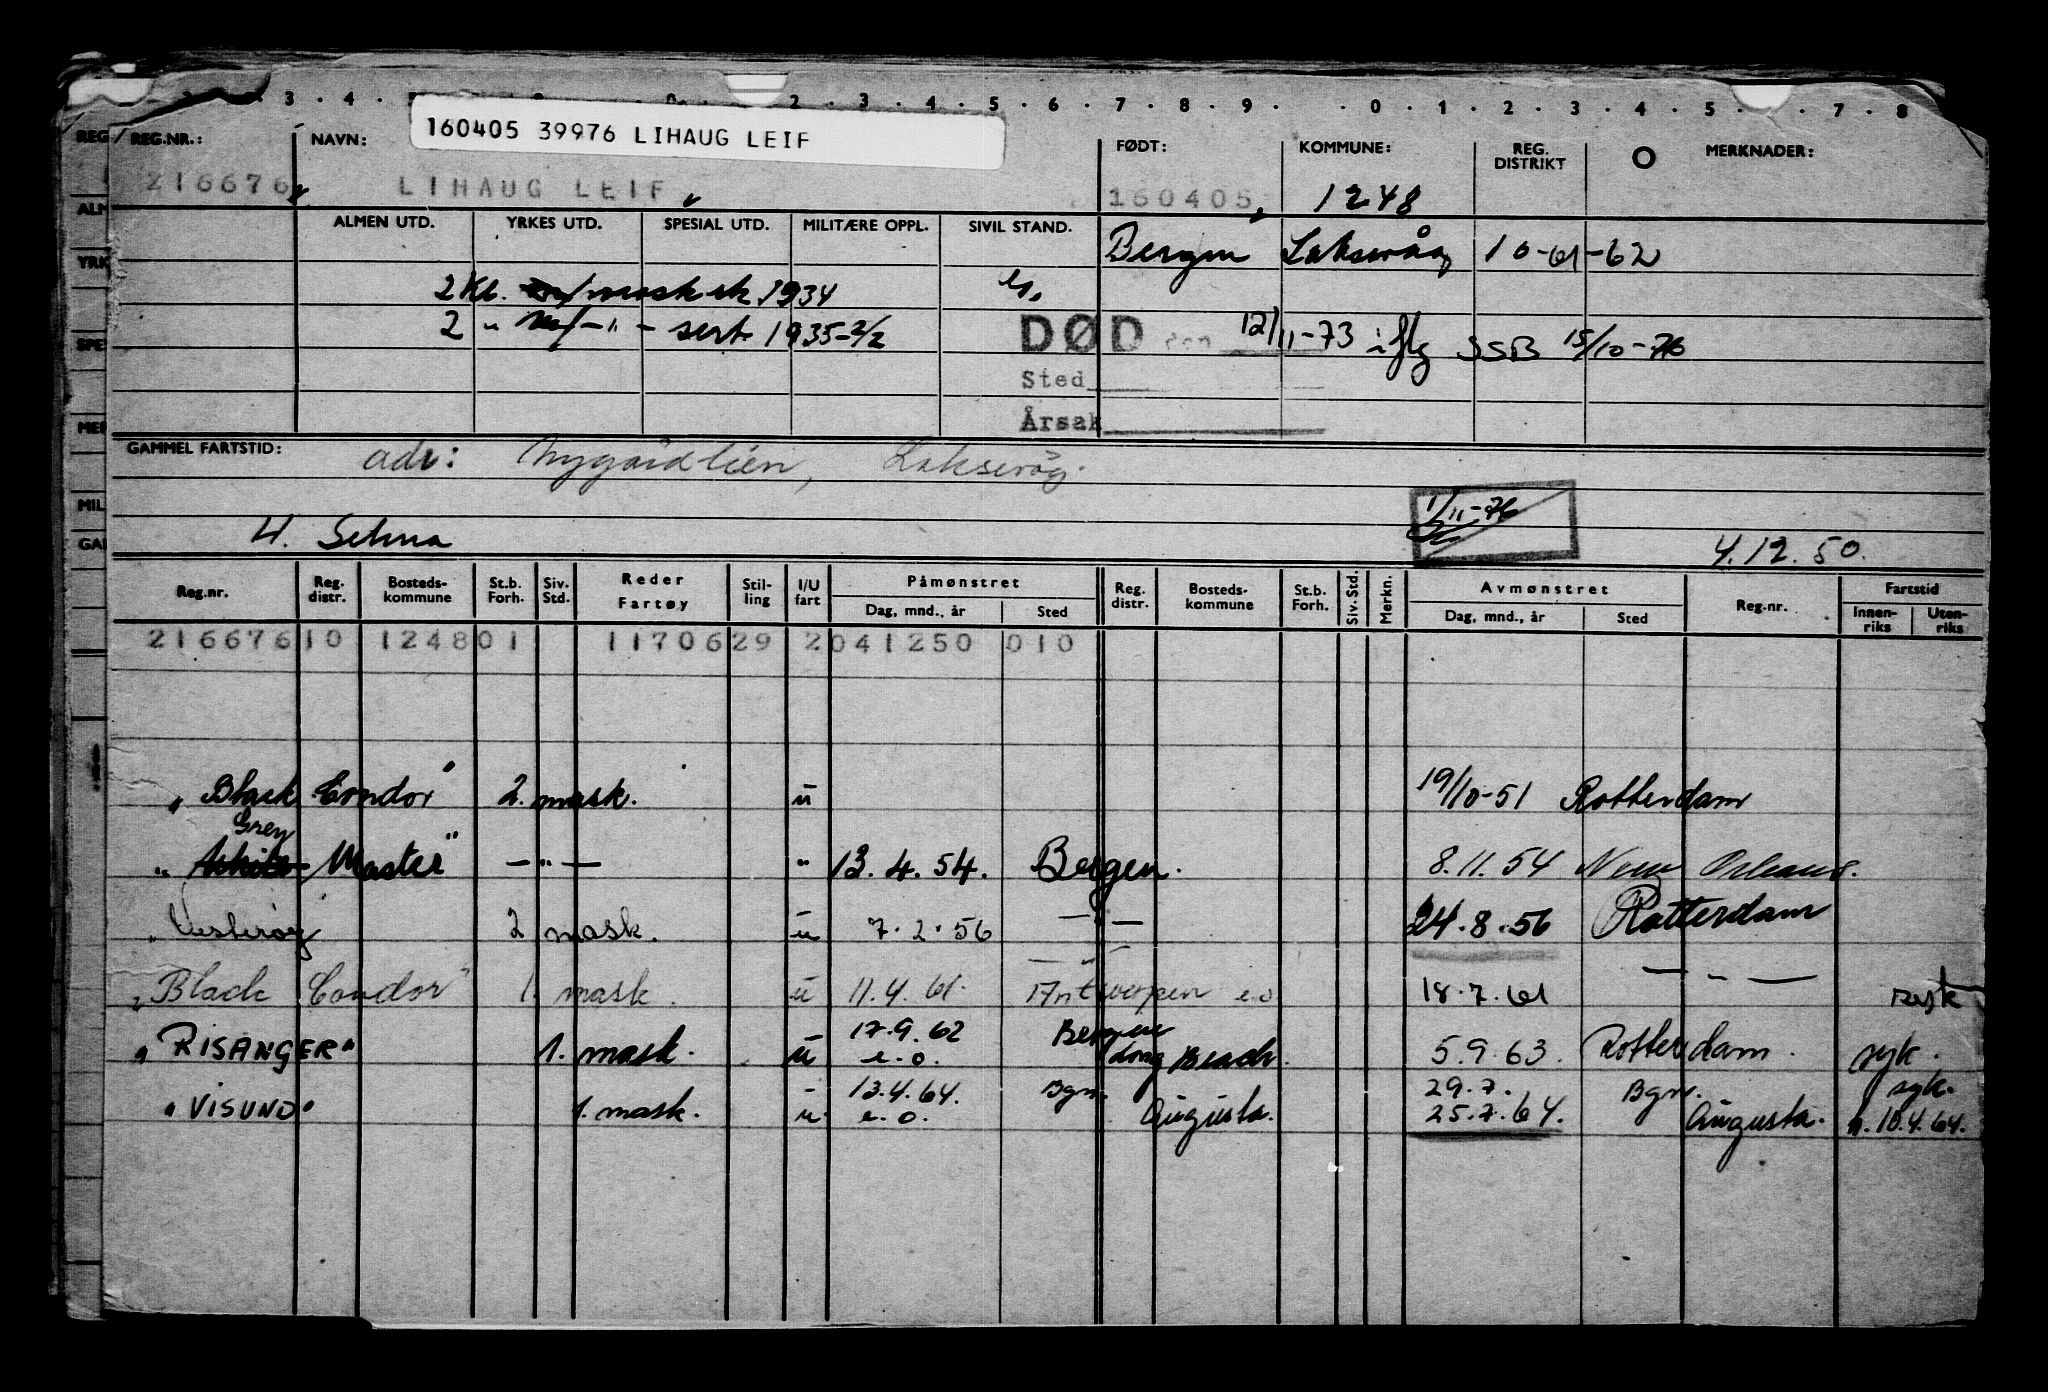 3 . 4 . 2 . 3 . 4 . 5 . 6 . 7 . 8 . 9 . 0 . 1 . 2 . 3 . 4 . 5 . 7 . 8
160405 39976 LIHAUG LEIF
REG REG.NR.: NAVN: FØDT: KOMMUNE: REG. DISTRIKT O MERKNADER:
216676 LIHAUG LEIF 160405 1248
ALM ALMEN UTD. YRKES UTD. SPESIAL UTD. MILITÆRE OPPL. SIVIL STAND.
Bergen Laksevåg 10-61-62
YRK
2 Kl. mask sk 1934
2 " - " - sert. 1935-2/2
SPE
DØD den 12/11-73 iflg SSB 15/10-76
Sted
Årsak
MER
GAMMEL FARTSTID: adr: Nygårdlien, Laksevåg.
MIL
1/11-76
GAM
H. Selma 4.12.50.
Reg.nr. Reg. distr. Bosteds- kommune St.b. Forh. Siv. Std. Reder Fartøy Stil- ling I/U fart Påmønstret Dag, mnd., år Sted Reg. distr. Bosteds- kommune St.b. Forh. Siv. Std. Merkn. Avmønstret Dag, mnd., år Sted Reg.nr. Fartstid Innen- riks Uten- riks
216676 10 1248 01 1170629 2 041250 010
"Black Condor" 2. mask. u 19/10-51 Rotterdam
Grey
"White Master" — " — " 13.4.54. Bergen. 8.11.54 New Orleans.
"Vesterøy 2 mask. u 7.2.56 — — 24.8.56 Rotterdam
"Black Condor" 1. mask. u 11.4.61. Antwerpen e.o 18.7.61 — " — resk
"RISANGER" 1. mask. u 17.9.62 e.o. Bergen Long Beach. 5.9.63. Rotterdam. syk.
"VISUND" 1. mask. u 13.4.64. e.o. Bgn. Augusta. 29.7. 25.7.64. Bgn. Augusta. syk. n.10.4.64.